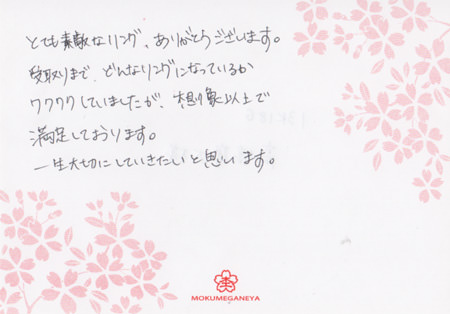 とても素敵なリング、ありがとうございます。
受取りまで、どんなリングになっているか
ワクワクしていましたが、想像以上で
満足しております。
一生大切にしていきたいと思います。
MOKUMEGANEYA